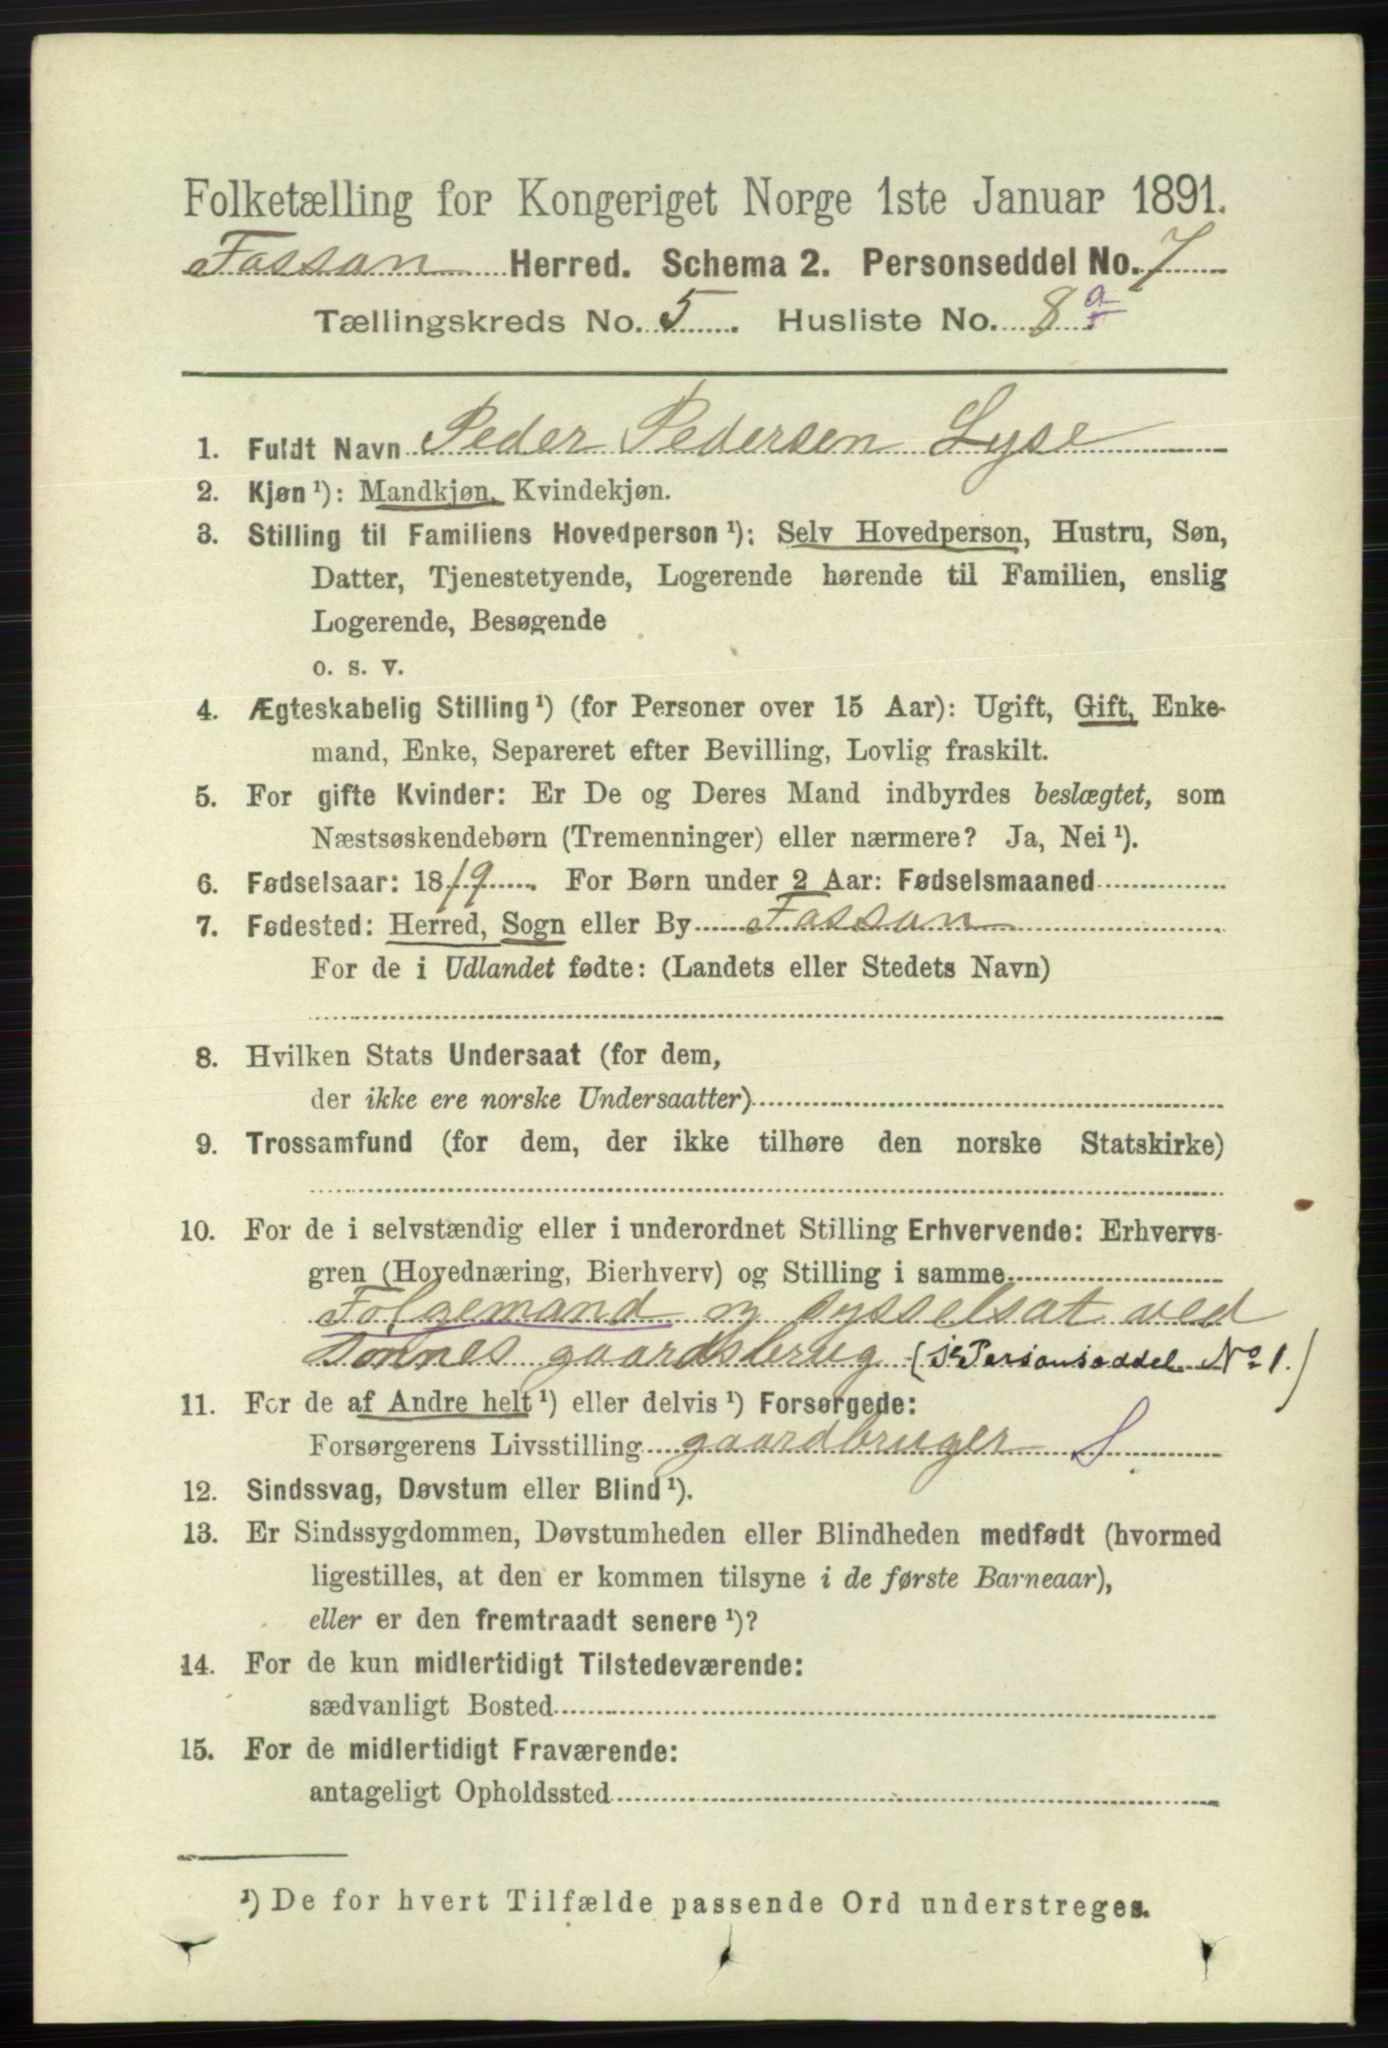 Folketælling for Kongeriget Norge 1ste Januar 1891.
Fossan Herred. Schema 2. Personseddel No. 7
Tællingskreds No. 5. Husliste No. 8 a
1. Fuldt Navn Peder Pedersen Lyse
2. Kjøn ¹): Mandkjøn, Kvindekjøn.
3. Stilling til Familiens Hovedperson ¹): Selv Hovedperson, Hustru, Søn,
Datter, Tjenestetyende, Logerende hørende til Familien, enslig
Logerende, Besøgende
o. s. v.
4. Ægteskabelig Stilling ¹) (for Personer over 15 Aar): Ugift, Gift, Enke-
mand, Enke, Separeret efter Bevilling, Lovlig fraskilt.
5. For gifte Kvinder: Er De og Deres Mand indbyrdes beslægtet, som
Næstsøskendebørn (Tremenninger) eller nærmere? Ja, Nei ¹).
6. Fødselsaar: 1819. For Børn under 2 Aar: Fødselsmaaned
7. Fødested: Herred, Sogn eller By Fossan
For de i Udlandet fødte: (Landets eller Stedets Navn)
8. Hvilken Stats Undersaat (for dem,
der ikke ere norske Undersaatter)
9. Trossamfund (for dem, der ikke tilhøre den norske Statskirke)
10. For de i selvstændig eller i underordnet Stilling Erhvervende: Erhvervs-
gren (Hovednæring, Bierhverv) og Stilling i samme
Folgemand og sysselsat ved
sønnes gaardsbrug (se Personseddel No 1.)
11. For de af Andre helt ¹) eller delvis ¹) Forsørgede:
Forsørgerens Livsstilling gaardbruger S
12. Sindssvag, Døvstum eller Blind ¹).
13. Er Sindssygdommen, Døvstumheden eller Blindheden medfødt (hvormed
ligestilles, at den er kommen tilsyne i de første Barneaar),
eller er den fremtraadt senere ¹)?
14. For de kun midlertidigt Tilstedeværende:
sædvanligt Bosted
15. For de midlertidigt Fraværende:
antageligt Opholdssted
¹) De for hvert Tilfælde passende Ord understreges.